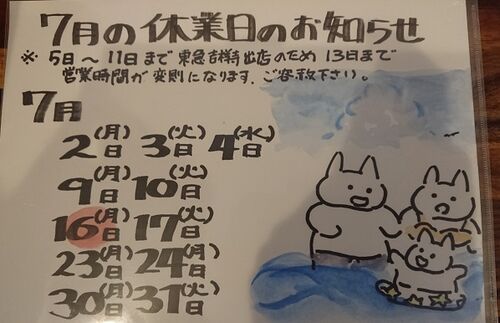 7月の休業日のお知らせ
※ 5日〜11日まで 東急吉祥寺出店のため 13日まで
営業時間が変則になります。ご容赦下さい。
7月
2日(月) 3日(火) 4日(水)
9日(月) 10日(火)
16日(月) 17日(火)
23日(月) 24日(月)
30日(月) 31日(火)